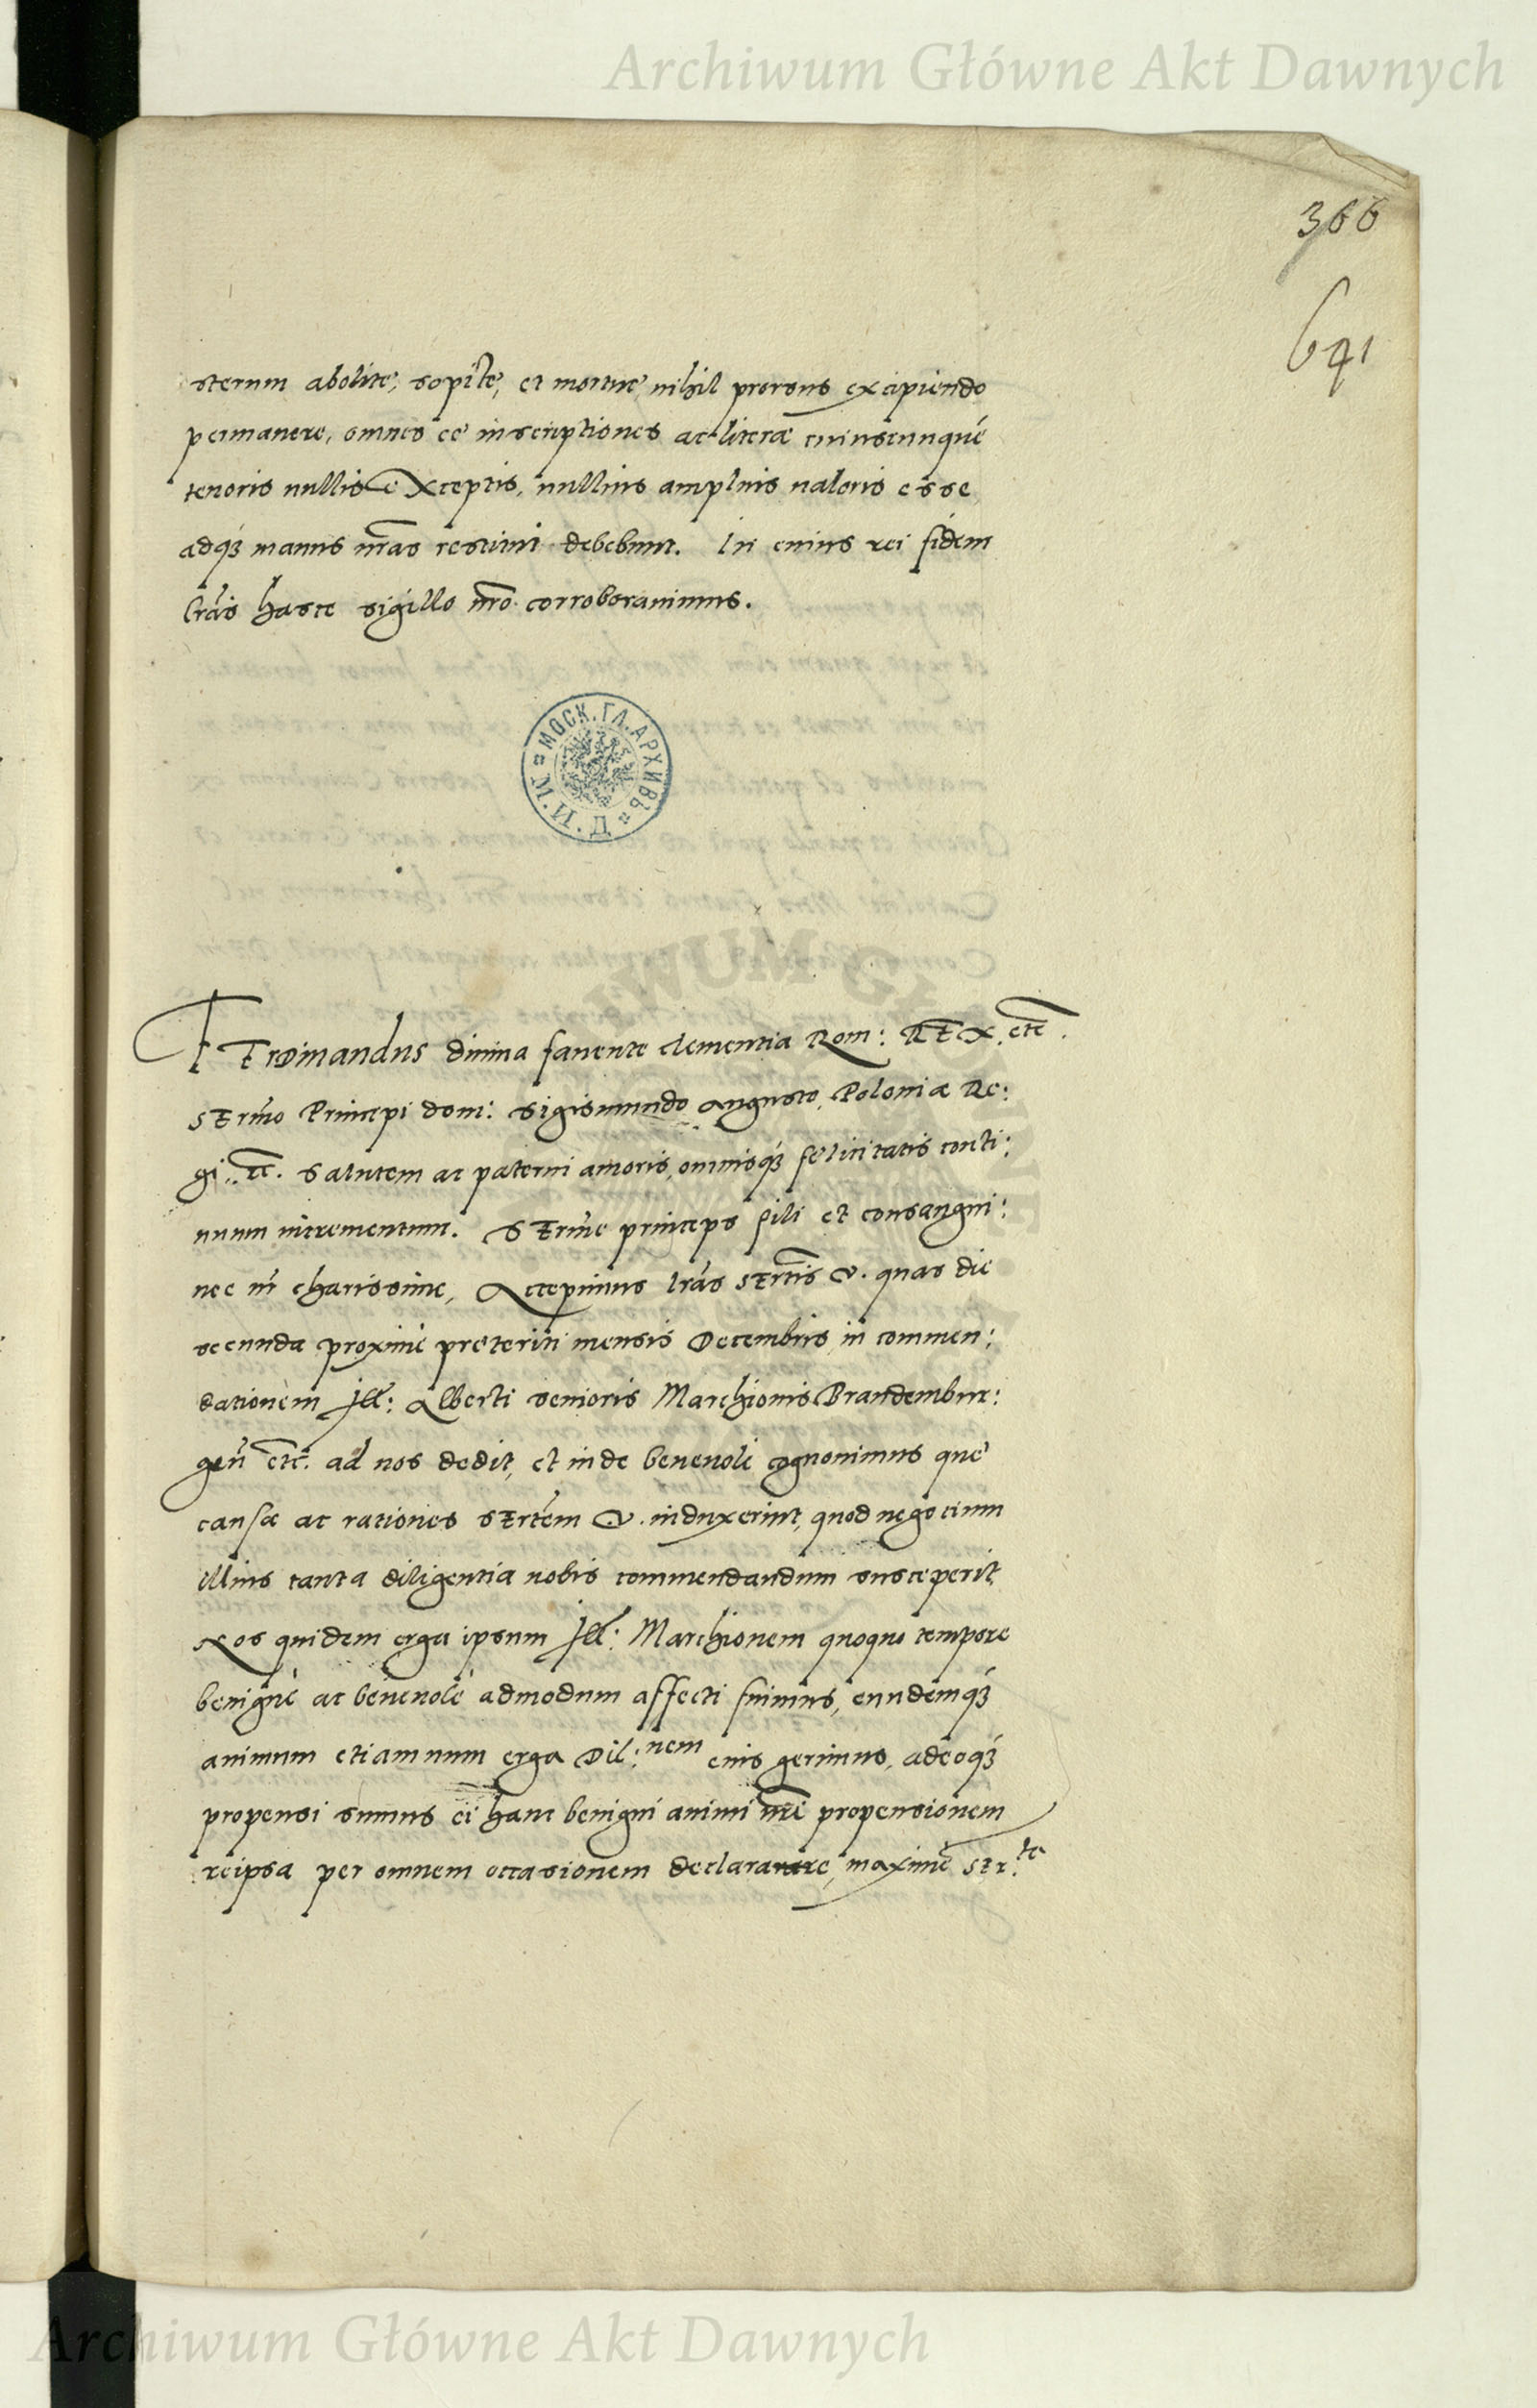 Archiwum Główne Akt Dawnych
366
641
sterum abolite, sopite, et mortue nihil prorsus excipiendo
permanere, omnes eę inscriptiones ac literæ cuiuscunque
tenoris nullis exceptis, nullius amplius valoris esse
adq3 manus nr̃as restitui debebunt. In cuius rei fidem
lr̃as hasce sigillo nr̃o corroborauimus.
МОСК. ГЛ. АРХИВЪ
М. И. Д.
FErdinandus diuina fauente clementia Rom: REX etc̃.
SErm̃o Principi dom: Sigismundo Augusto, Poloniæ Re:
gi. etc̃. Salutem ac paterni amoris, omnisq3 felicitatis conti:
nuum incrementum. SErm̃e princeps fili et consangui:
nee nr̃ charissime, Accepimus lr̃as SErtis V. quas die
secunda proxime preteriti mensis Decembris in commen:
dationem Ill: Alberti senioris Marchionis Brandembur:
geñ etc̃. ad nos dedit, et inde beneuole cognouimus quę
causæ ac rationes SErtem V. induxerint, quod negocium
illius tanta diligentia nobis commendandum susceperit
Nos quidem erga ipsum Ill: Marchionem quoquo tempore
benigne ac beneuole admodum affecti fuimus, eundemq3
animum etiamnum erga Dil:nem eius gerimus, adeoq3
propensi sumus ei hanc benigni animi nr̃i propensionem
reipsa per omnem occasionem declarare, maxime SEr:te
Archiwum Główne Akt Dawnych